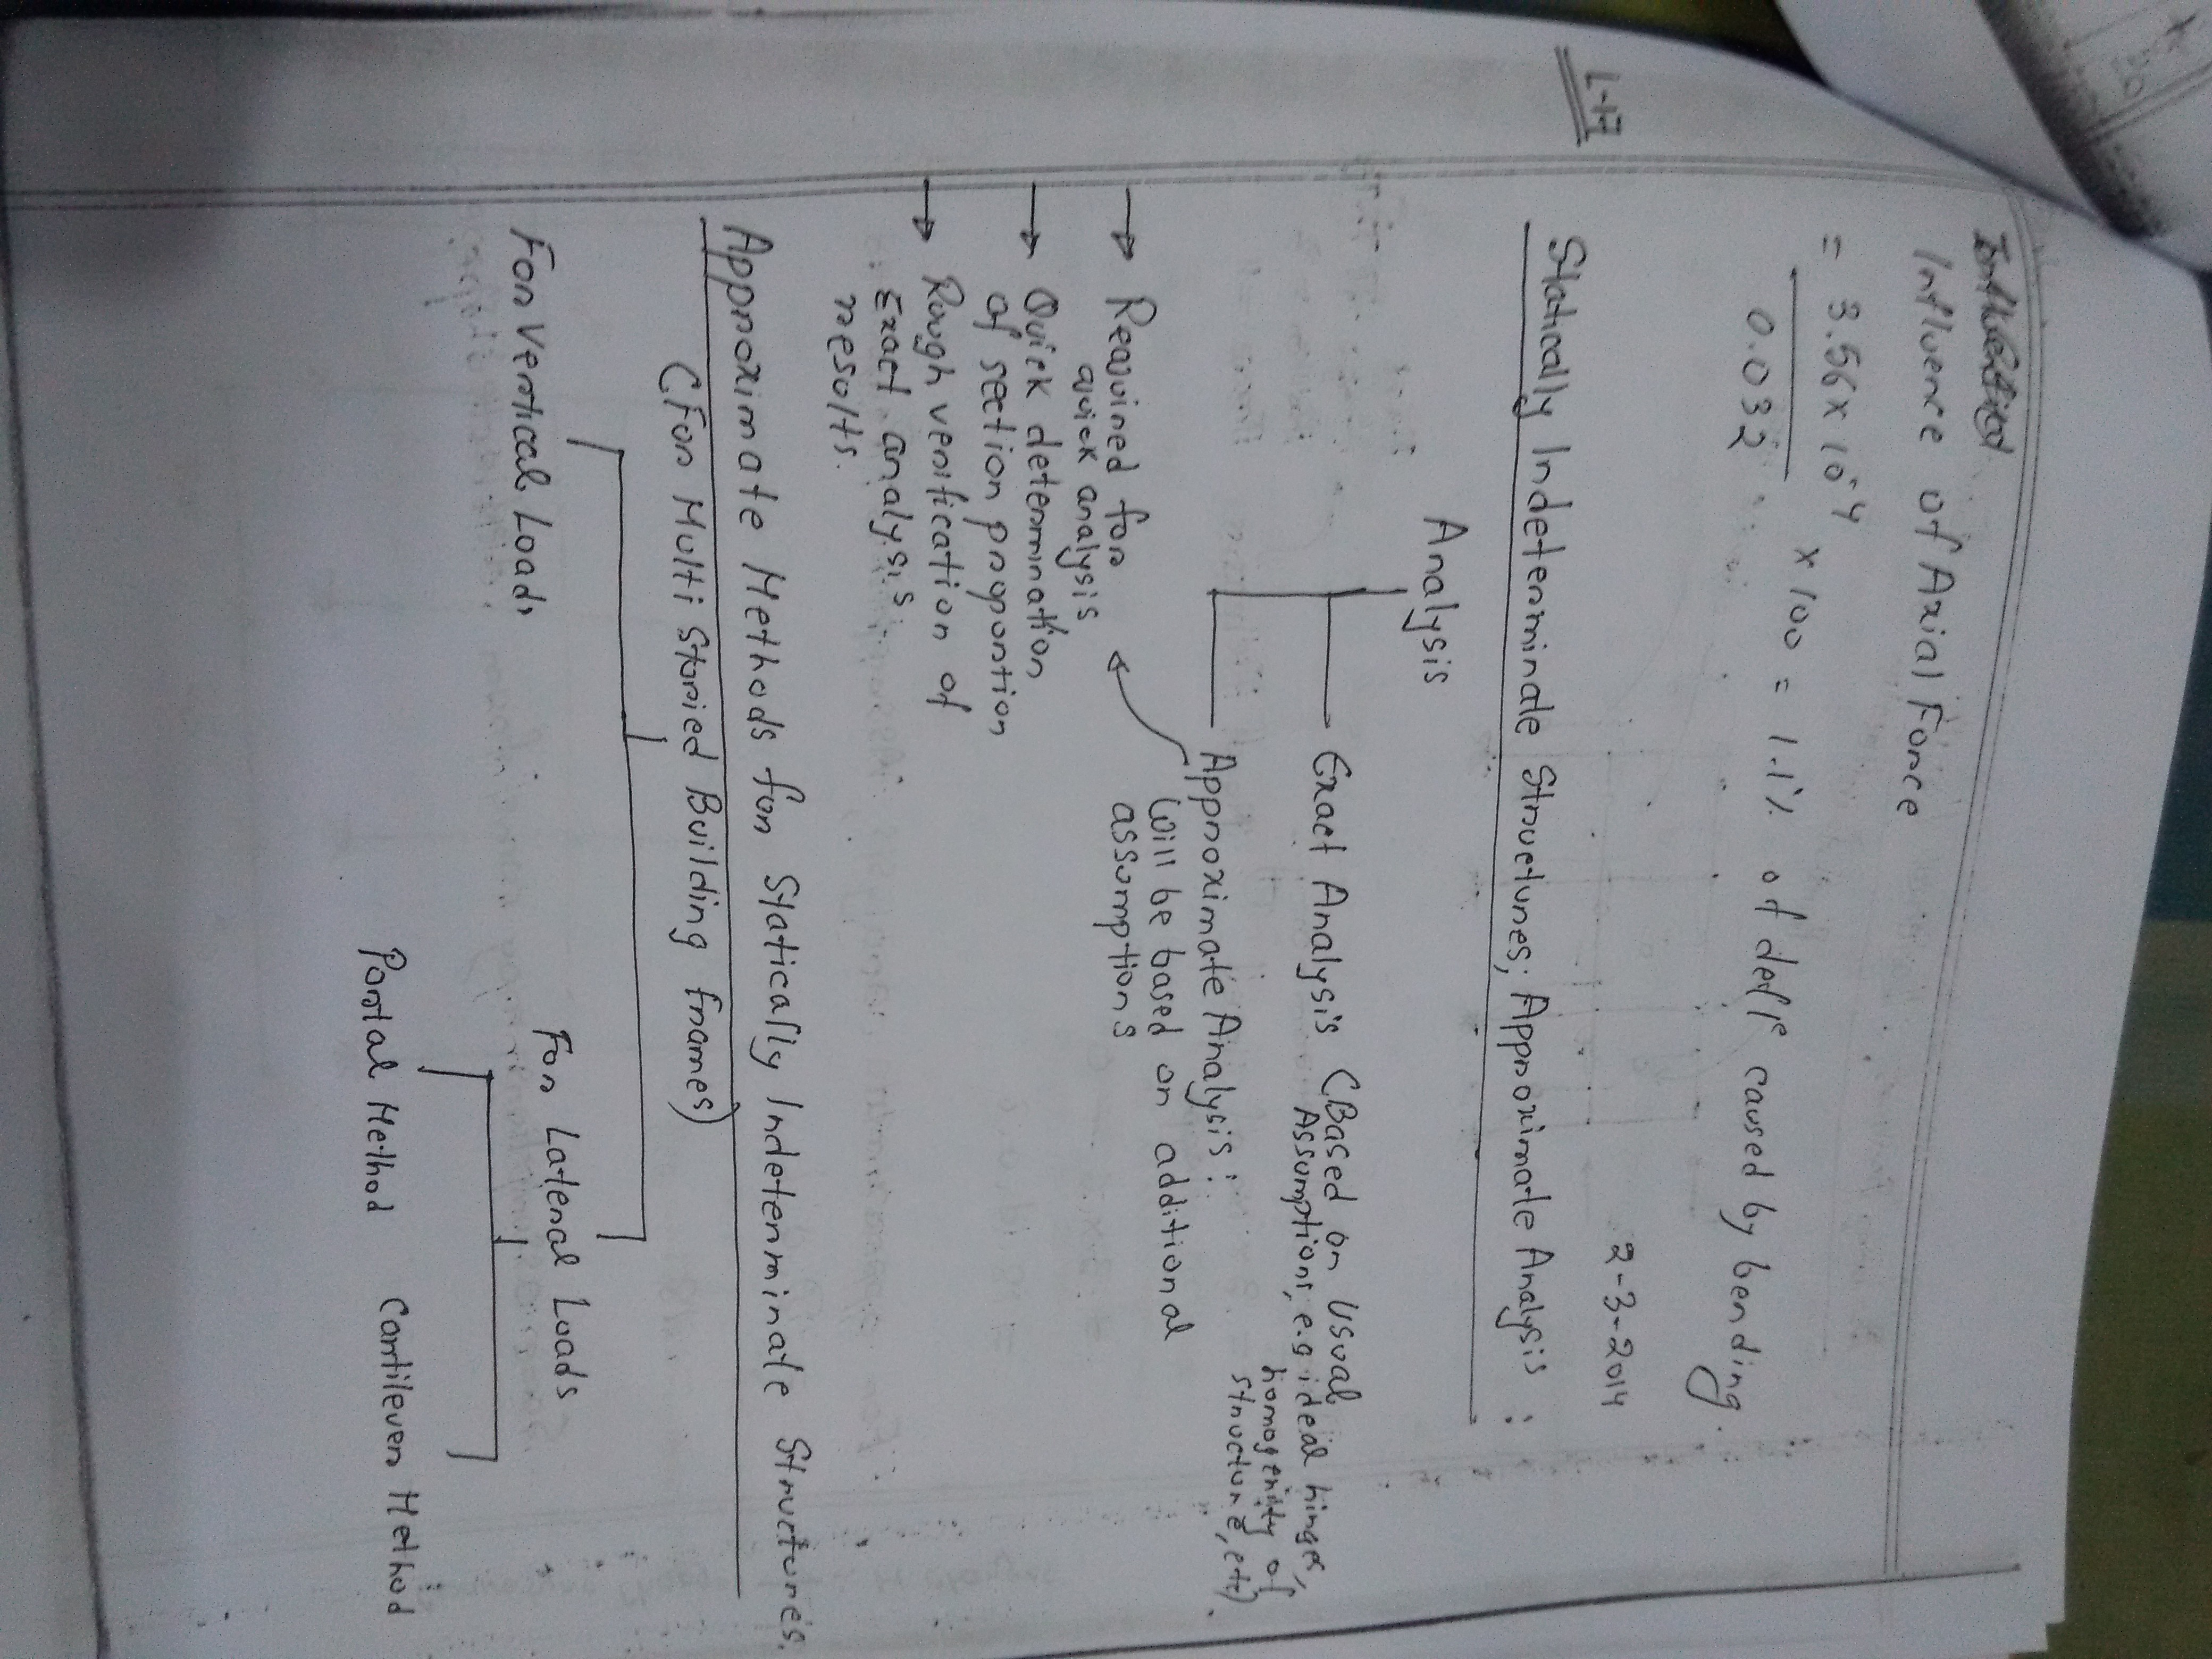 Influence of Axial Force
= 3.56 x 10^-4 / 0.032 x 100 = 1.1% of defl^n caused by bending.
2-3-2014
L-17
Statically Indeterminate Structures; Approximate Analysis :
Analysis
Exact Analysis (Based on Usual
Assumptions, e.g ideal hinges,
homogenity of
structure, etc).
Approximate Analysis :
Will be based on additional
assumptions
→ Required for
quick analysis
→ Quick determination
of section proportion
→ Rough verification of
Exact analysis
results.
Approximate Methods for Statically Indeterminate Structures.
(For Multi Storied Building frames)
For Vertical Loads
For Lateral Loads
Portal Method
Cantilever Method